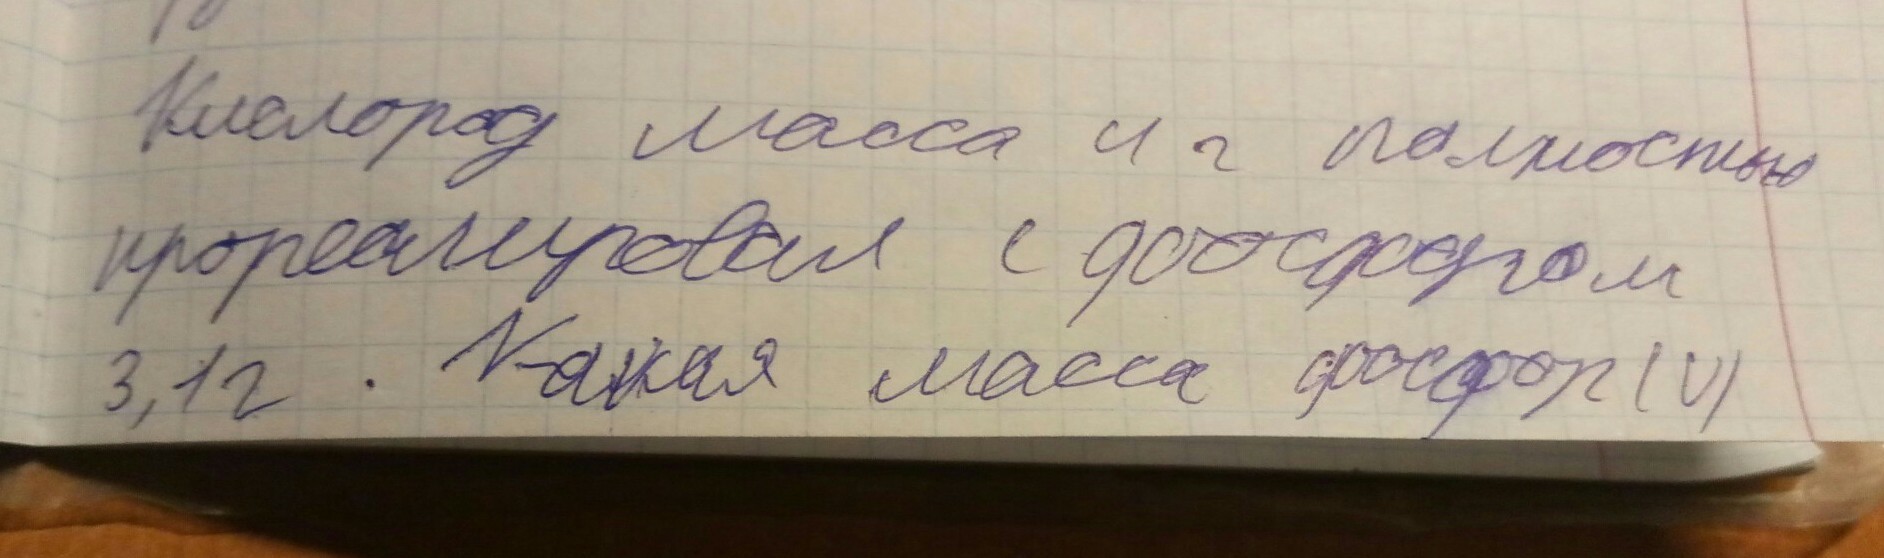 Кислород масса 4 г полностью
прореагировал с фосфором
3,1г. Какая масса фосфор (V)